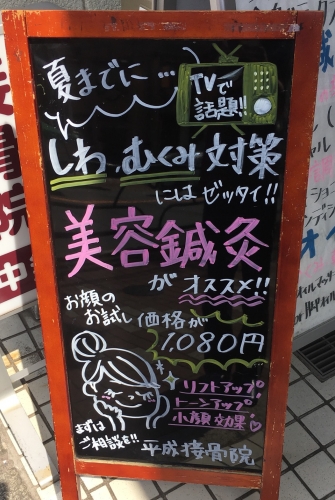 夏までに…
TVで
話題!!
しわ、むくみ対策
にはゼッタイ!!
美容鍼灸
がオススメ!!
お顔の
お試し価格が
1,080円
リフトアップ!
トーンアップ!
小顔効果!
まずは
ご相談を!!
平成接骨院
骨
院
中